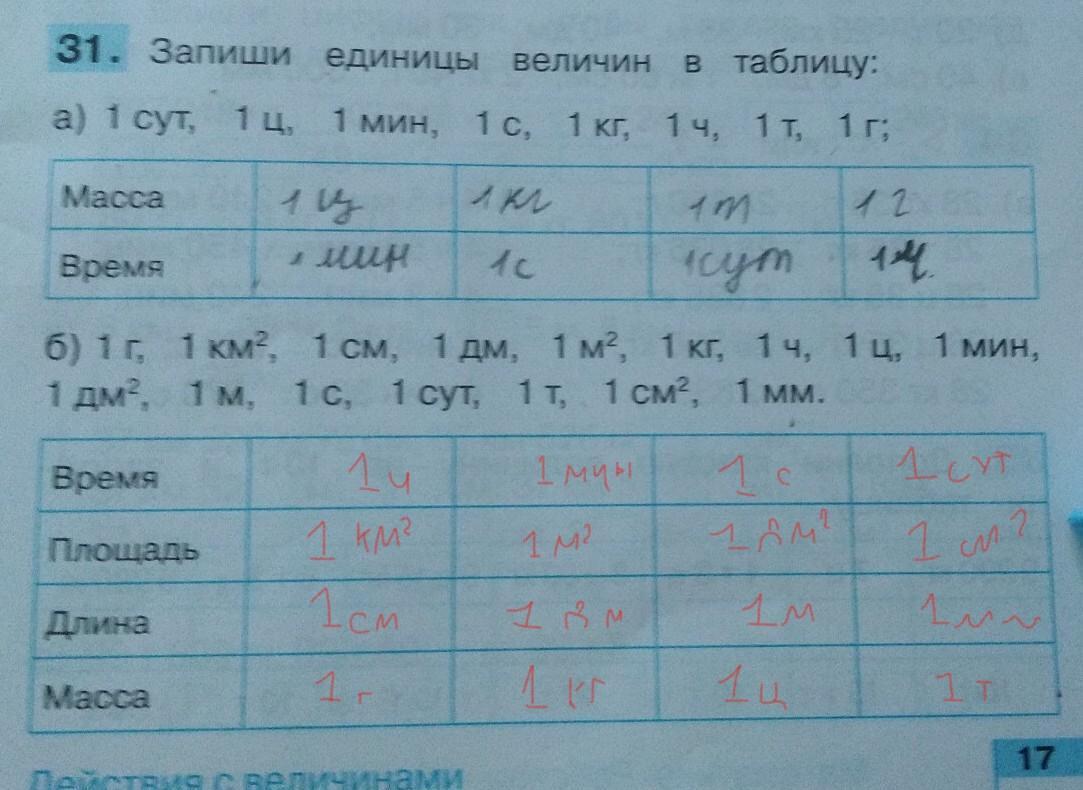 31. Запиши единицы величин в таблицу:
а) 1 сут, 1 ц, 1 мин, 1 с, 1 кг, 1 ч, 1 т, 1 г;
Масса 1 ц 1 кг 1 т 1 г
Время 1 мин 1 с 1 сут 1 ч
б) 1 г, 1 км², 1 см, 1 дм, 1 м², 1 кг, 1 ч, 1 ц, 1 мин,
1 дм², 1 м, 1 с, 1 сут, 1 т, 1 см², 1 мм.
Время 1 ч 1 мин 1 с 1 сут
Площадь 1 км² 1 м² 1 дм² 1 см²
Длина 1 см 1 дм 1 м 1 мм
Масса 1 г 1 кг 1 ц 1 т
17
Действия с величинами